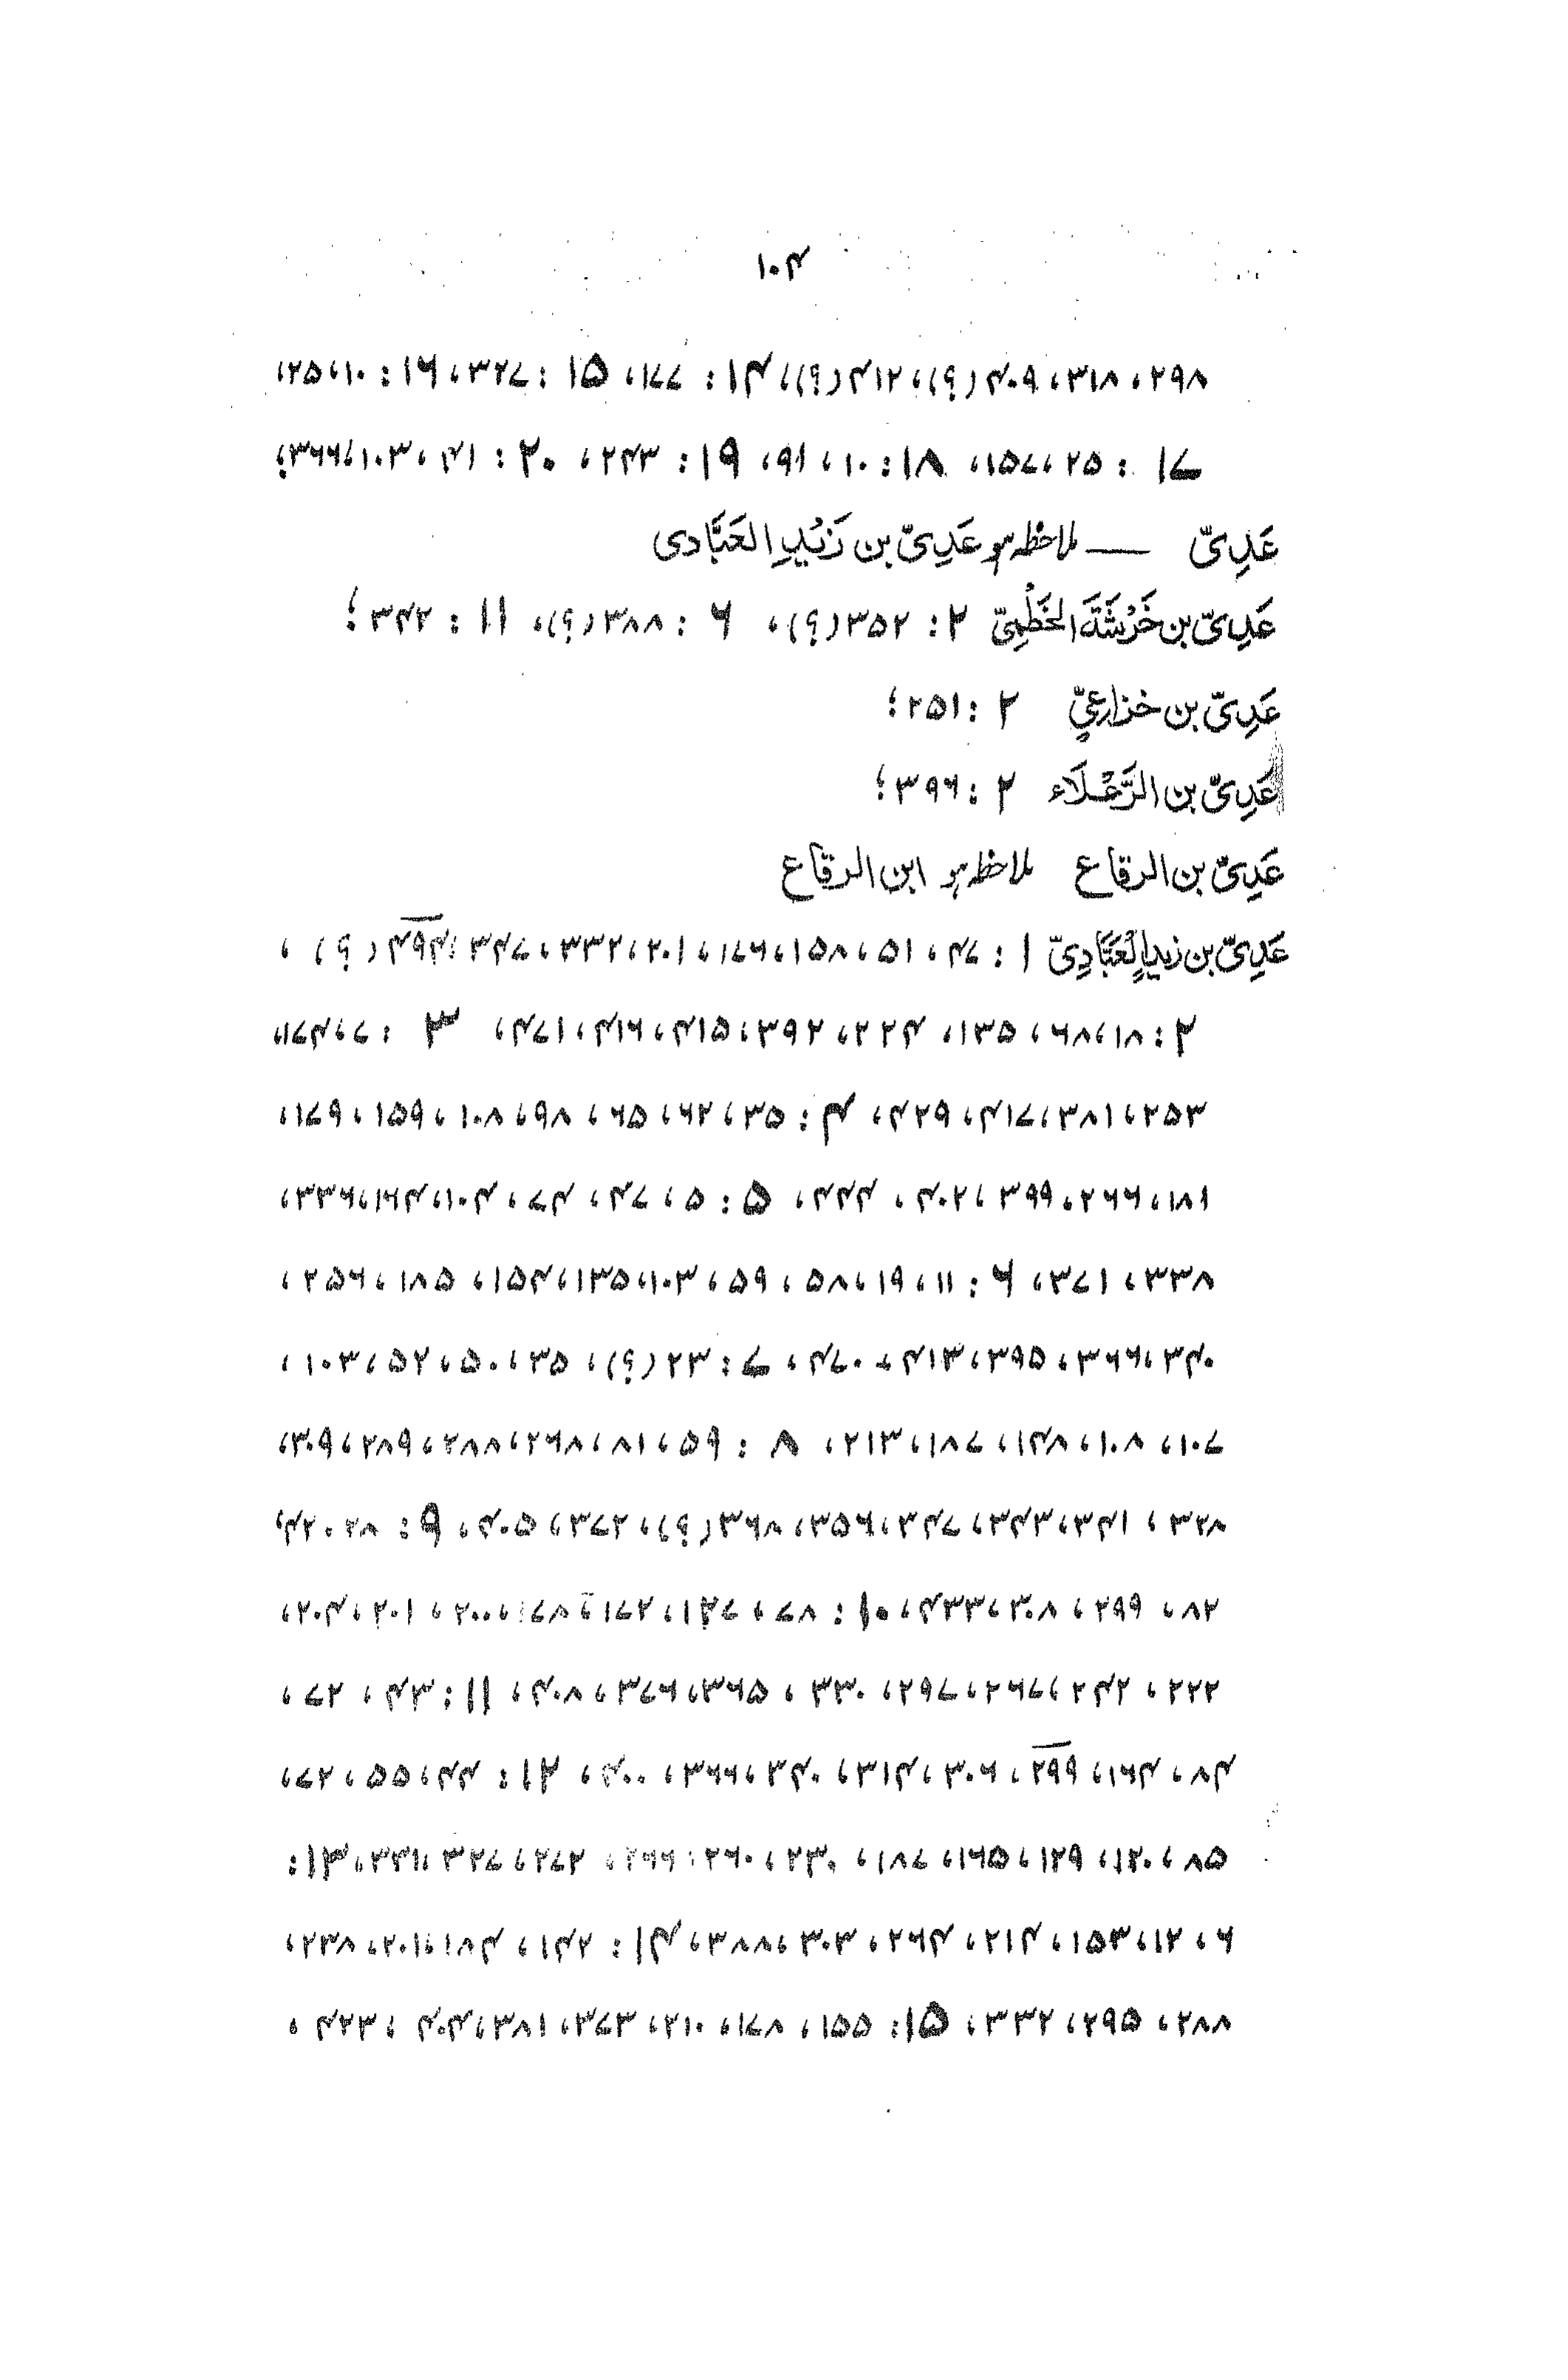 ۱۰۴
۲۹۸، ۳۱۸، ۴۰۹ (؟)، ۴۱۲ (؟)، ۱۴ : ۱۷۷، ۱۵ : ۳۲۷، ۱۶ : ۱۰، ۲۵،
۱۷ : ۲۵، ۱۵۷، ۱۸ : ۱۰، ۹۱، ۱۹ : ۲۴۳، ۲۰ : ۴۱، ۱۰۳، ۳۶۶؛
عَدِیّ — ملاحظہ ہو عَدِیّ بن زَیْدِ العَبَّادی
عَدِیّ بن خَرْشَةَ الخَطْمِیّ ۲ : ۳۵۲ (؟)، ۶ : ۳۸۸ (؟)، ۱۱ : ۳۴۲؛
عَدِیّ بن خزاعیٍّ ۲ : ۲۵۱؛
عَدِیّ بن الرَّعْلَاء ۲ : ۳۹۶؛
عَدِیّ بن الرقاع ملاحظہ ہو ابن الرقاع
عَدِیّ بن زیدِ العَبَّادِیّ ۱ : ۴۷، ۵۱، ۱۵۸، ۱۷۶، ۲۰۱، ۳۳۲، ۳۴۷، ۴۹۴ (؟)،
۲ : ۱۸، ۶۸، ۱۳۵، ۲۲۴، ۳۹۲، ۴۱۵، ۴۱۶، ۴۷۱، ۳ : ۷، ۷۴،
۲۵۳، ۳۸۱، ۴۱۷، ۴۲۹، ۴ : ۳۵، ۶۲، ۶۵، ۹۸، ۱۰۸، ۱۵۹، ۱۷۹،
۱۸۱، ۲۶۶، ۳۹۹، ۴۰۲، ۴۴۴، ۵ : ۵، ۴۷، ۷۴، ۱۰۴، ۱۶۴، ۳۳۶،
۳۳۸، ۳۷۱، ۶ : ۱۱، ۱۹، ۵۸، ۵۹، ۱۰۳، ۱۳۵، ۱۵۴، ۱۸۵، ۲۵۶،
۳۴۰، ۳۶۶، ۳۹۵، ۴۱۳، ۴۷۰، ۷ : ۲۳ (؟)، ۳۵، ۵۰، ۵۲، ۱۰۳،
۱۰۷، ۱۰۸، ۱۴۸، ۱۸۷، ۲۱۳، ۸ : ۵۹، ۸۱، ۲۶۸، ۲۸۸، ۲۸۹، ۳۰۹،
۳۲۸، ۳۴۱، ۳۴۳، ۳۴۷، ۳۵۶، ۳۶۸ (؟)، ۳۷۲، ۴۰۵، ۹ : ۲۸، ۴۲،
۸۲، ۲۹۹، ۳۰۸، ۴۳۳، ۱۰ : ۷۸، ۱۴۷، ۱۷۲، ۱۷۸، ۲۰۰، ۲۰۱، ۲۰۴،
۲۲۲، ۲۴۲، ۲۶۷، ۲۹۷، ۳۳۰، ۳۶۵، ۳۷۶، ۴۰۸، ۱۱ : ۴۳، ۷۲،
۸۴، ۱۶۴، ۲۹۹، ۳۰۶، ۳۱۴، ۳۴۰، ۳۶۶، ۴۰۰، ۱۲ : ۴۴، ۵۵، ۷۲،
۸۵، ۱۲۰، ۱۲۹، ۱۶۵، ۱۸۷، ۲۳۰، ۲۶۰، ۲۶۶، ۲۷۲، ۳۲۷، ۳۳۱، ۱۳ :
۶، ۱۲، ۱۵۳، ۲۱۴، ۲۶۴، ۳۰۳، ۳۸۸، ۱۴ : ۱۴۲، ۱۸۴، ۲۰۱، ۲۳۸،
۲۸۸، ۲۹۵، ۳۳۲، ۱۵ : ۱۵۵، ۱۷۸، ۲۱۰، ۳۷۳، ۳۸۱، ۴۰۴، ۴۲۳،